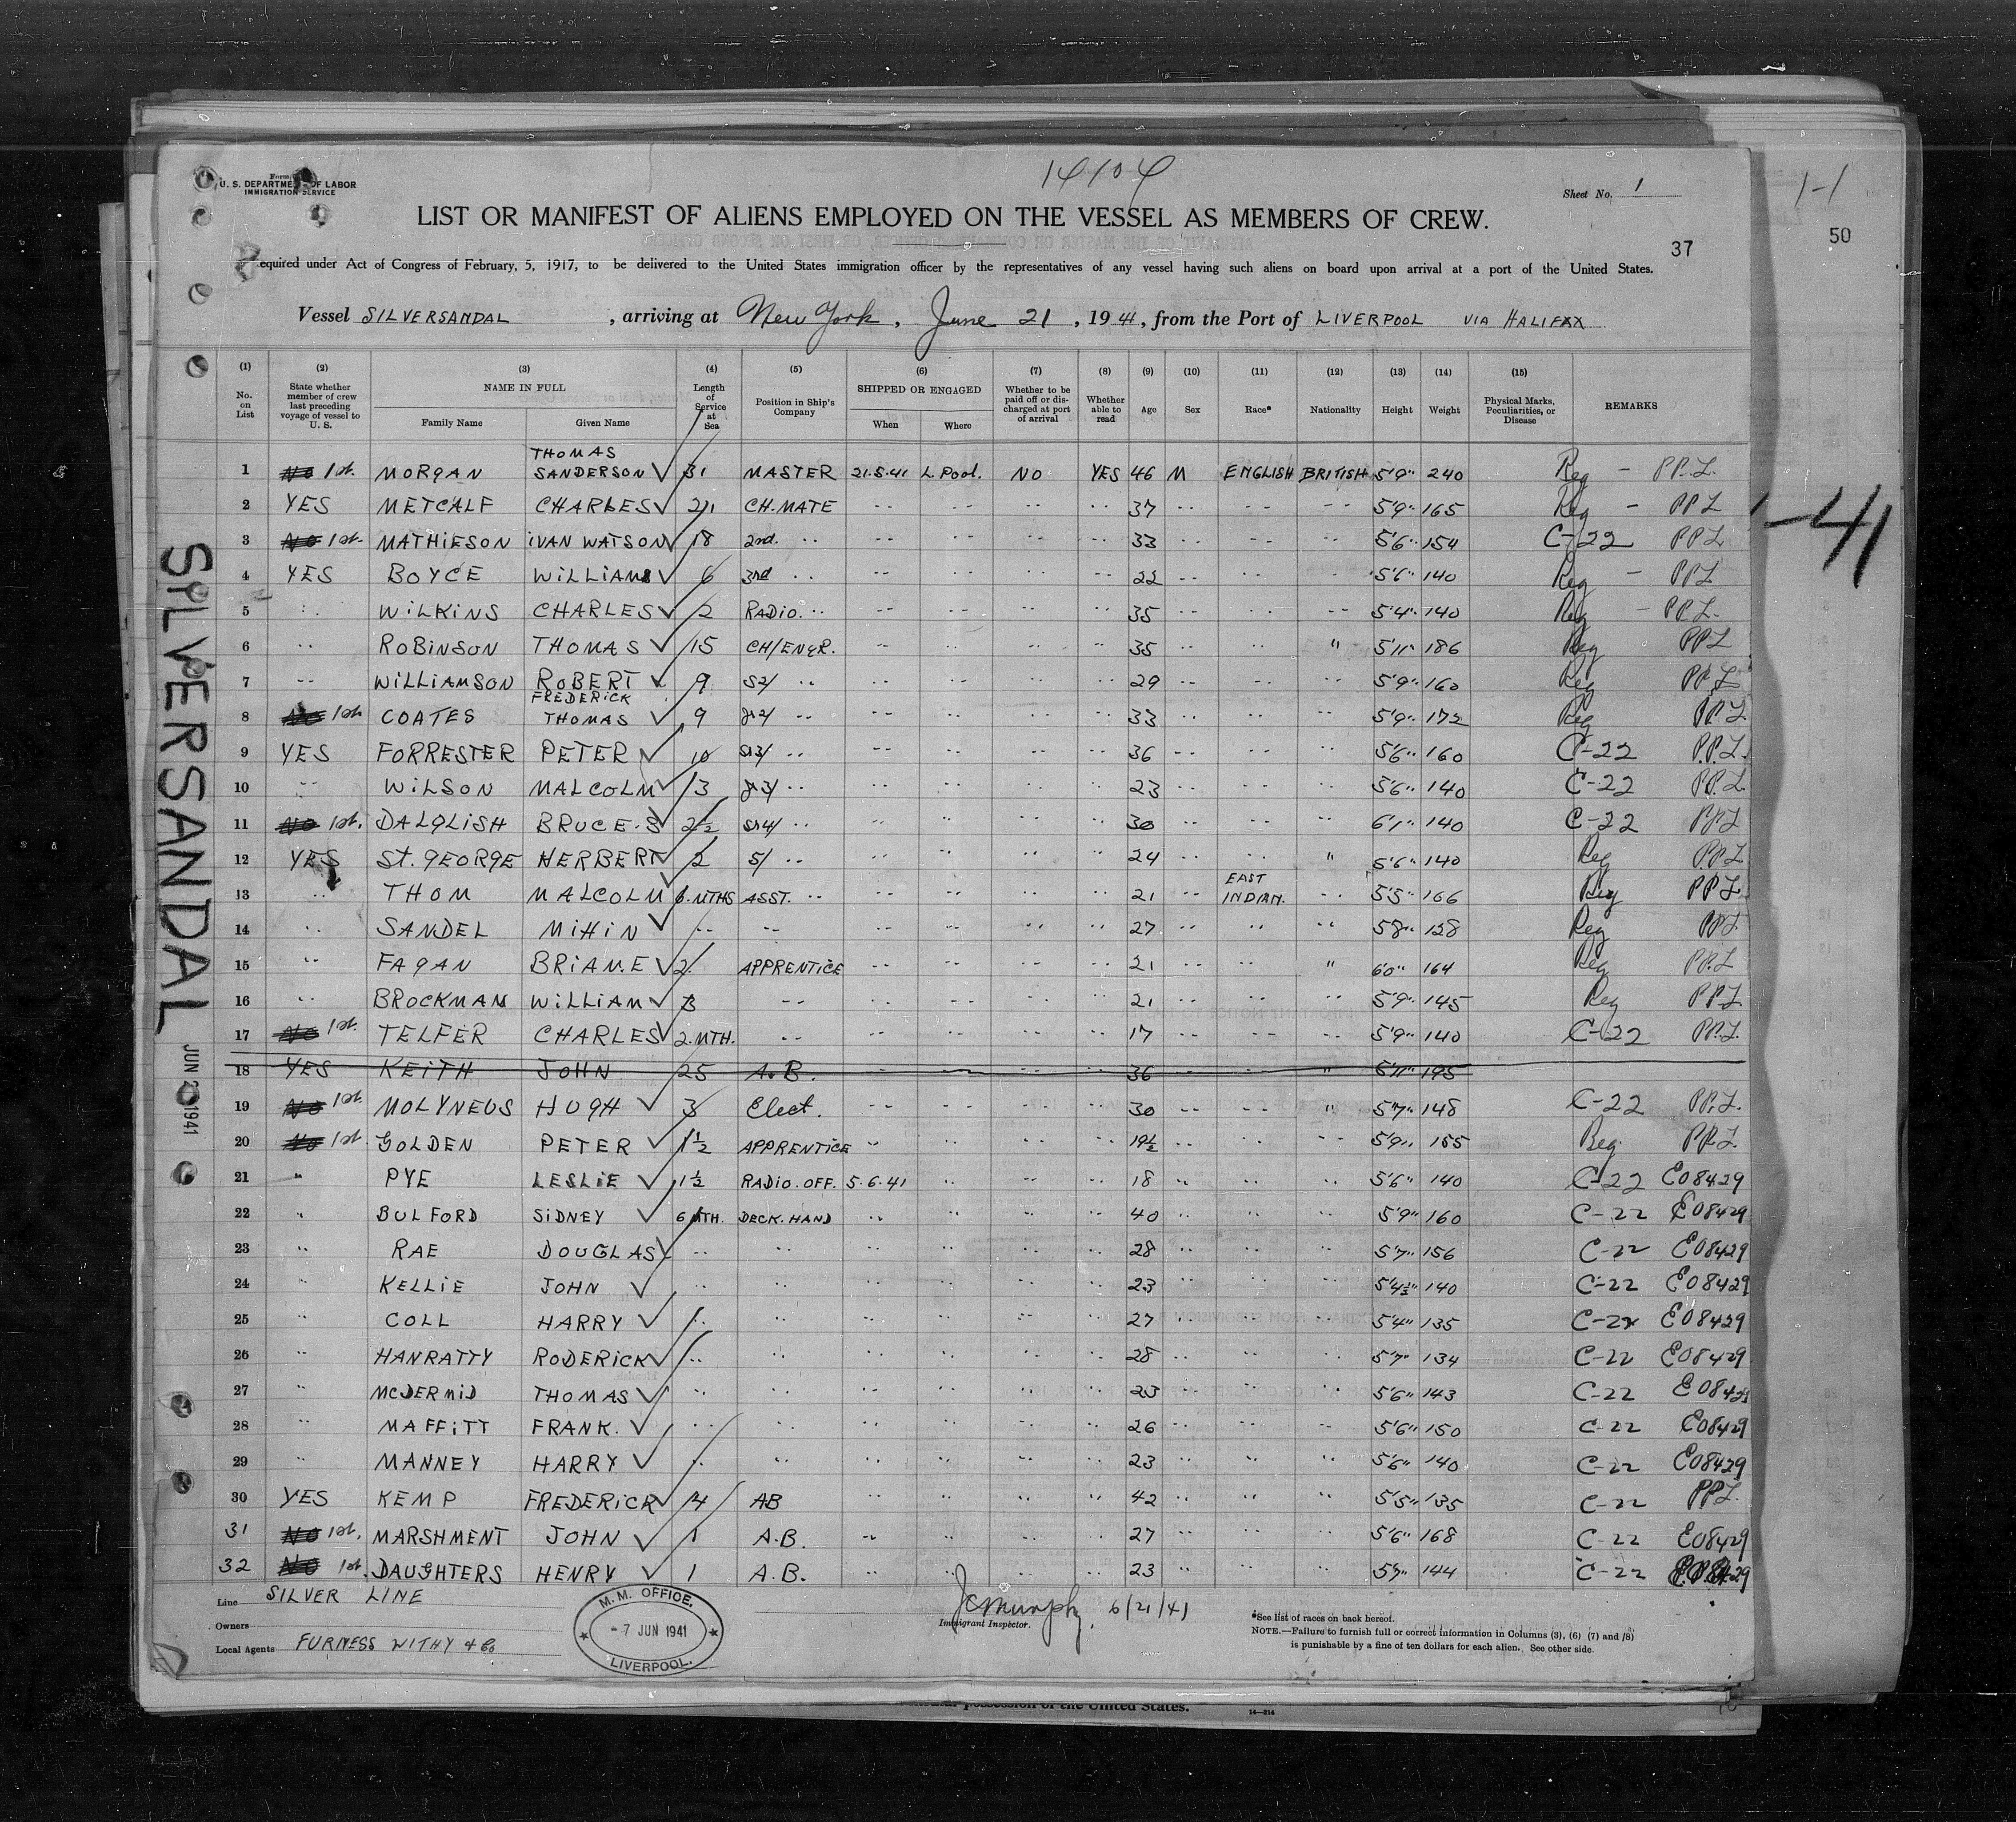 14104
Form
U. S. DEPARTMENT OF LABOR
IMMIGRATION SERVICE
Sheet No. 1
1-1
LIST OR MANIFEST OF ALIENS EMPLOYED ON THE VESSEL AS MEMBERS OF CREW.
37
50
equired under Act of Congress of February, 5, 1917, to be delivered to the United States immigration officer by the representatives of any vessel having such aliens on board upon arrival at a port of the United States.
Vessel SILVERSANDAL, arriving at New York, June 21, 1941, from the Port of LIVERPOOL VIA HALIFAX
(1) (2) (3) (4) (5) (6) (7) (8) (9) (10) (11) (12) (13) (14) (15)
No. on List State whether member of crew last preceding voyage of vessel to U. S. NAME IN FULL Family Name Given Name Length of Service at Sea Position in Ship's Company SHIPPED OR ENGAGED When Where Whether to be paid off or discharged at port of arrival Whether able to read Age Sex Race* Nationality Height Weight Physical Marks, Peculiarities, or Disease REMARKS
1 No 1st. MORGAN THOMAS SANDERSON ✓ 31 MASTER 21.5.41 L.Pool. NO YES 46 M ENGLISH BRITISH 5'9" 240 Reg - P.P.L.
2 YES METCALF CHARLES ✓ 21 CH.MATE -- -- -- -- 37 -- -- -- 5'9" 165 Reg - PPL
3 No 1st. MATHIESON IVAN WATSON ✓ 18 2nd. -- -- -- -- -- 33 -- -- -- 5'6" 154 C-22 PPL
4 YES BOYCE WILLIAM ✓ 6 3rd -- -- -- -- -- 22 -- -- -- 5'6" 140 Reg - PPL
5 -- WILKINS CHARLES ✓ 2 RADIO. -- -- -- -- -- 35 -- -- -- 5'4" 140 Reg - P.P.L.
6 -- ROBINSON THOMAS ✓ 15 CH/ENGR. -- -- -- -- 35 -- -- " 5'11" 186 Reg PPL
7 -- WILLIAMSON ROBERT ✓ 9 S2/ -- -- -- -- -- 29 -- -- -- 5'9" 160 Reg PPL
8 No 1st FREDERICK COATES THOMAS ✓ 9 Jr2/ -- -- -- -- -- 33 -- -- -- 5'9" 172 Reg P.P.L
9 YES FORRESTER PETER ✓ 10 Sr3/ -- -- -- -- -- 36 -- -- -- 5'6" 160 C-22 P.P.L.
10 -- WILSON MALCOLM ✓ 3 Jr3/ -- -- -- -- -- 23 -- -- -- 5'6" 140 C-22 P.P.L
11 No 1st. DALGLISH BRUCE.S ✓ 2½ Sr4/ -- -- -- -- -- 30 -- -- -- 6'1" 140 C-22 PPL
12 YES ST. GEORGE HERBERT ✓ 2 5/ -- -- -- -- -- 24 -- -- " 5'6" 140 Reg P.P.L
13 -- THOM MALCOLM 6.MTHS ASST. -- -- -- -- -- 21 -- EAST INDIAN. -- 5'5" 166 Reg PPL
14 -- SANDEL MIHIN ✓ -- -- -- -- -- -- 27 -- -- -- 5'8" 128 Reg PPL
15 -- FAGAN BRIAN.E ✓ 2 APPRENTICE -- -- -- -- 21 -- -- " 6'0" 164 Reg PP.L
16 -- BROCKMAN WILLIAM ✓ 3 -- -- -- -- -- 21 -- -- -- 5'9" 145 Reg PPL
17 No 1st. TELFER CHARLES ✓ 2.MTH. -- -- -- -- -- 17 -- -- -- 5'9" 140 C-22 PP.L.
18 YES KEITH JOHN 25 A.B. 36 -- -- " 5'11" 195
19 No 1st. MOLYNEUS HUGH ✓ 3 Elect. -- -- -- -- 30 -- -- " 5'7" 148 C-22 PP.L.
20 No 1st. GOLDEN PETER ✓ 1½ APPRENTICE -- -- -- -- 19½ -- -- -- 5'9" 155 Reg. P.P.L.
21 " PYE LESLIE ✓ 1½ RADIO.OFF. 5.6.41 -- -- -- 18 -- -- -- 5'6" 140 C-22 E08429
22 " BULFORD SIDNEY ✓ 6 MTH. DECK.HAND -- -- -- -- 40 -- -- -- 5'9" 160 C-22 E08429
23 " RAE DOUGLAS ✓ -- -- -- -- -- -- 28 -- -- -- 5'7" 156 C-22 E08429
24 " KELLIE JOHN ✓ -- -- -- -- -- -- 23 -- -- -- 5'4½" 140 C-22 E08429
25 " COLL HARRY ✓ -- -- -- -- -- -- 27 -- -- -- 5'4" 135 C-22 E08429
26 " HANRATTY RODERICK ✓ -- -- -- -- -- -- 28 -- -- -- 5'7" 134 C-22 E08429
27 " MCDERMID THOMAS ✓ -- -- -- -- -- -- 23 -- -- -- 5'6" 143 C-22 E08429
28 " MAFFITT FRANK. ✓ -- -- -- -- -- -- 26 -- -- -- 5'6" 150 C-22 E08429
29 " MANNEY HARRY ✓ -- -- -- -- -- -- 23 -- -- -- 5'6" 140 C-22 E08429
30 YES KEMP FREDERICK ✓ 14 AB -- -- -- -- 42 -- -- -- 5'5" 135 C-22 PPL.
31 No 1st. MARSHMENT JOHN ✓ 1 A.B. -- -- -- -- 27 -- -- -- 5'6" 168 C-22 E08429
32 No 1st. DAUGHTERS HENRY ✓ 1 A.B. -- -- -- -- 23 -- -- -- 5'7" 144 C-22
SILVERSANDAL
JUN 1941
1-41
Line SILVER LINE
Owners
Local Agents FURNESS WITHY & Co
M. M. OFFICE.
-7 JUN 1941
LIVERPOOL.
JCMurphy 6/21/41
Immigrant Inspector.
*See list of races on back hereof.
NOTE.—Failure to furnish full or correct information in Columns (3), (6) (7) and (8)
is punishable by a fine of ten dollars for each alien. See other side.
possession of the United States.
14—214